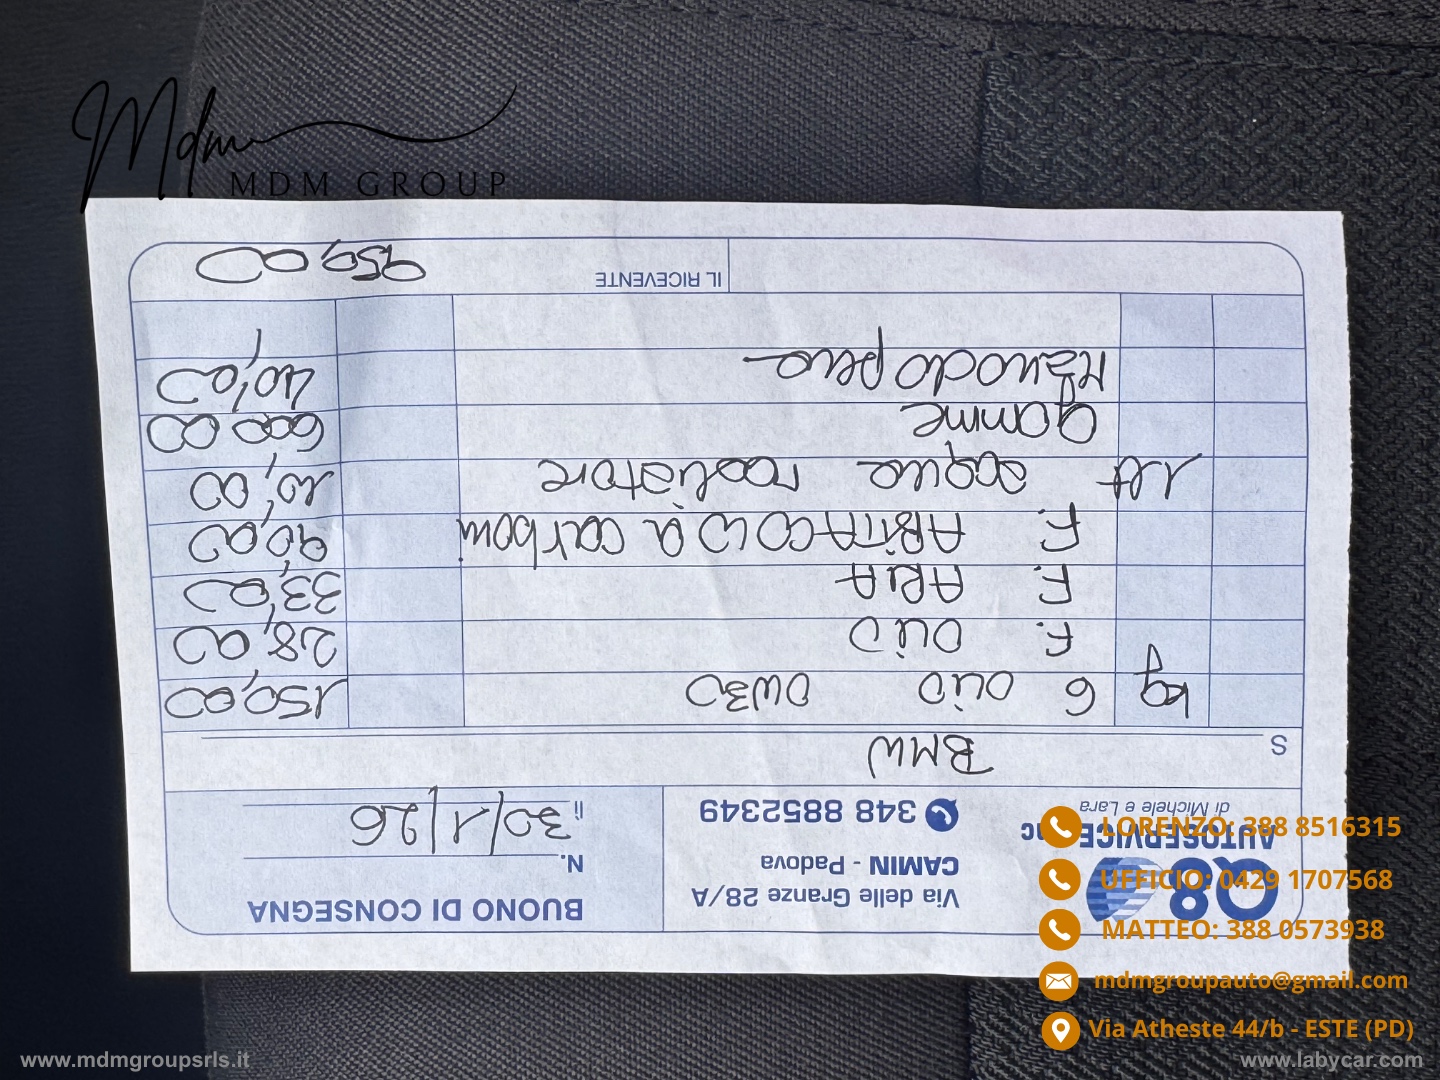 Mdm
MDM GROUP
Q8
AUTOSERVICE
di Michele e Lara
Via delle Granze 28/A
CAMIN - Padova
348 8852349
BUONO DI CONSEGNA
N.
li 30/1/26
S BMW
kg 6 OLIO 0W30 150,00
F. OLIO 28,00
F. ARIA 33,00
F. ABITACOLO a carboni 90,00
1 lt acqua radiatore 10,00
gomme 600,00
Manodopera 40,00
IL RICEVENTE 950,00
LORENZO: 388 8516315
UFFICIO: 0429 1707568
MATTEO: 388 0573938
mdmgroupauto@gmail.com
Via Atheste 44/b - ESTE (PD)
www.mdmgroupsrls.it
www.labycar.com